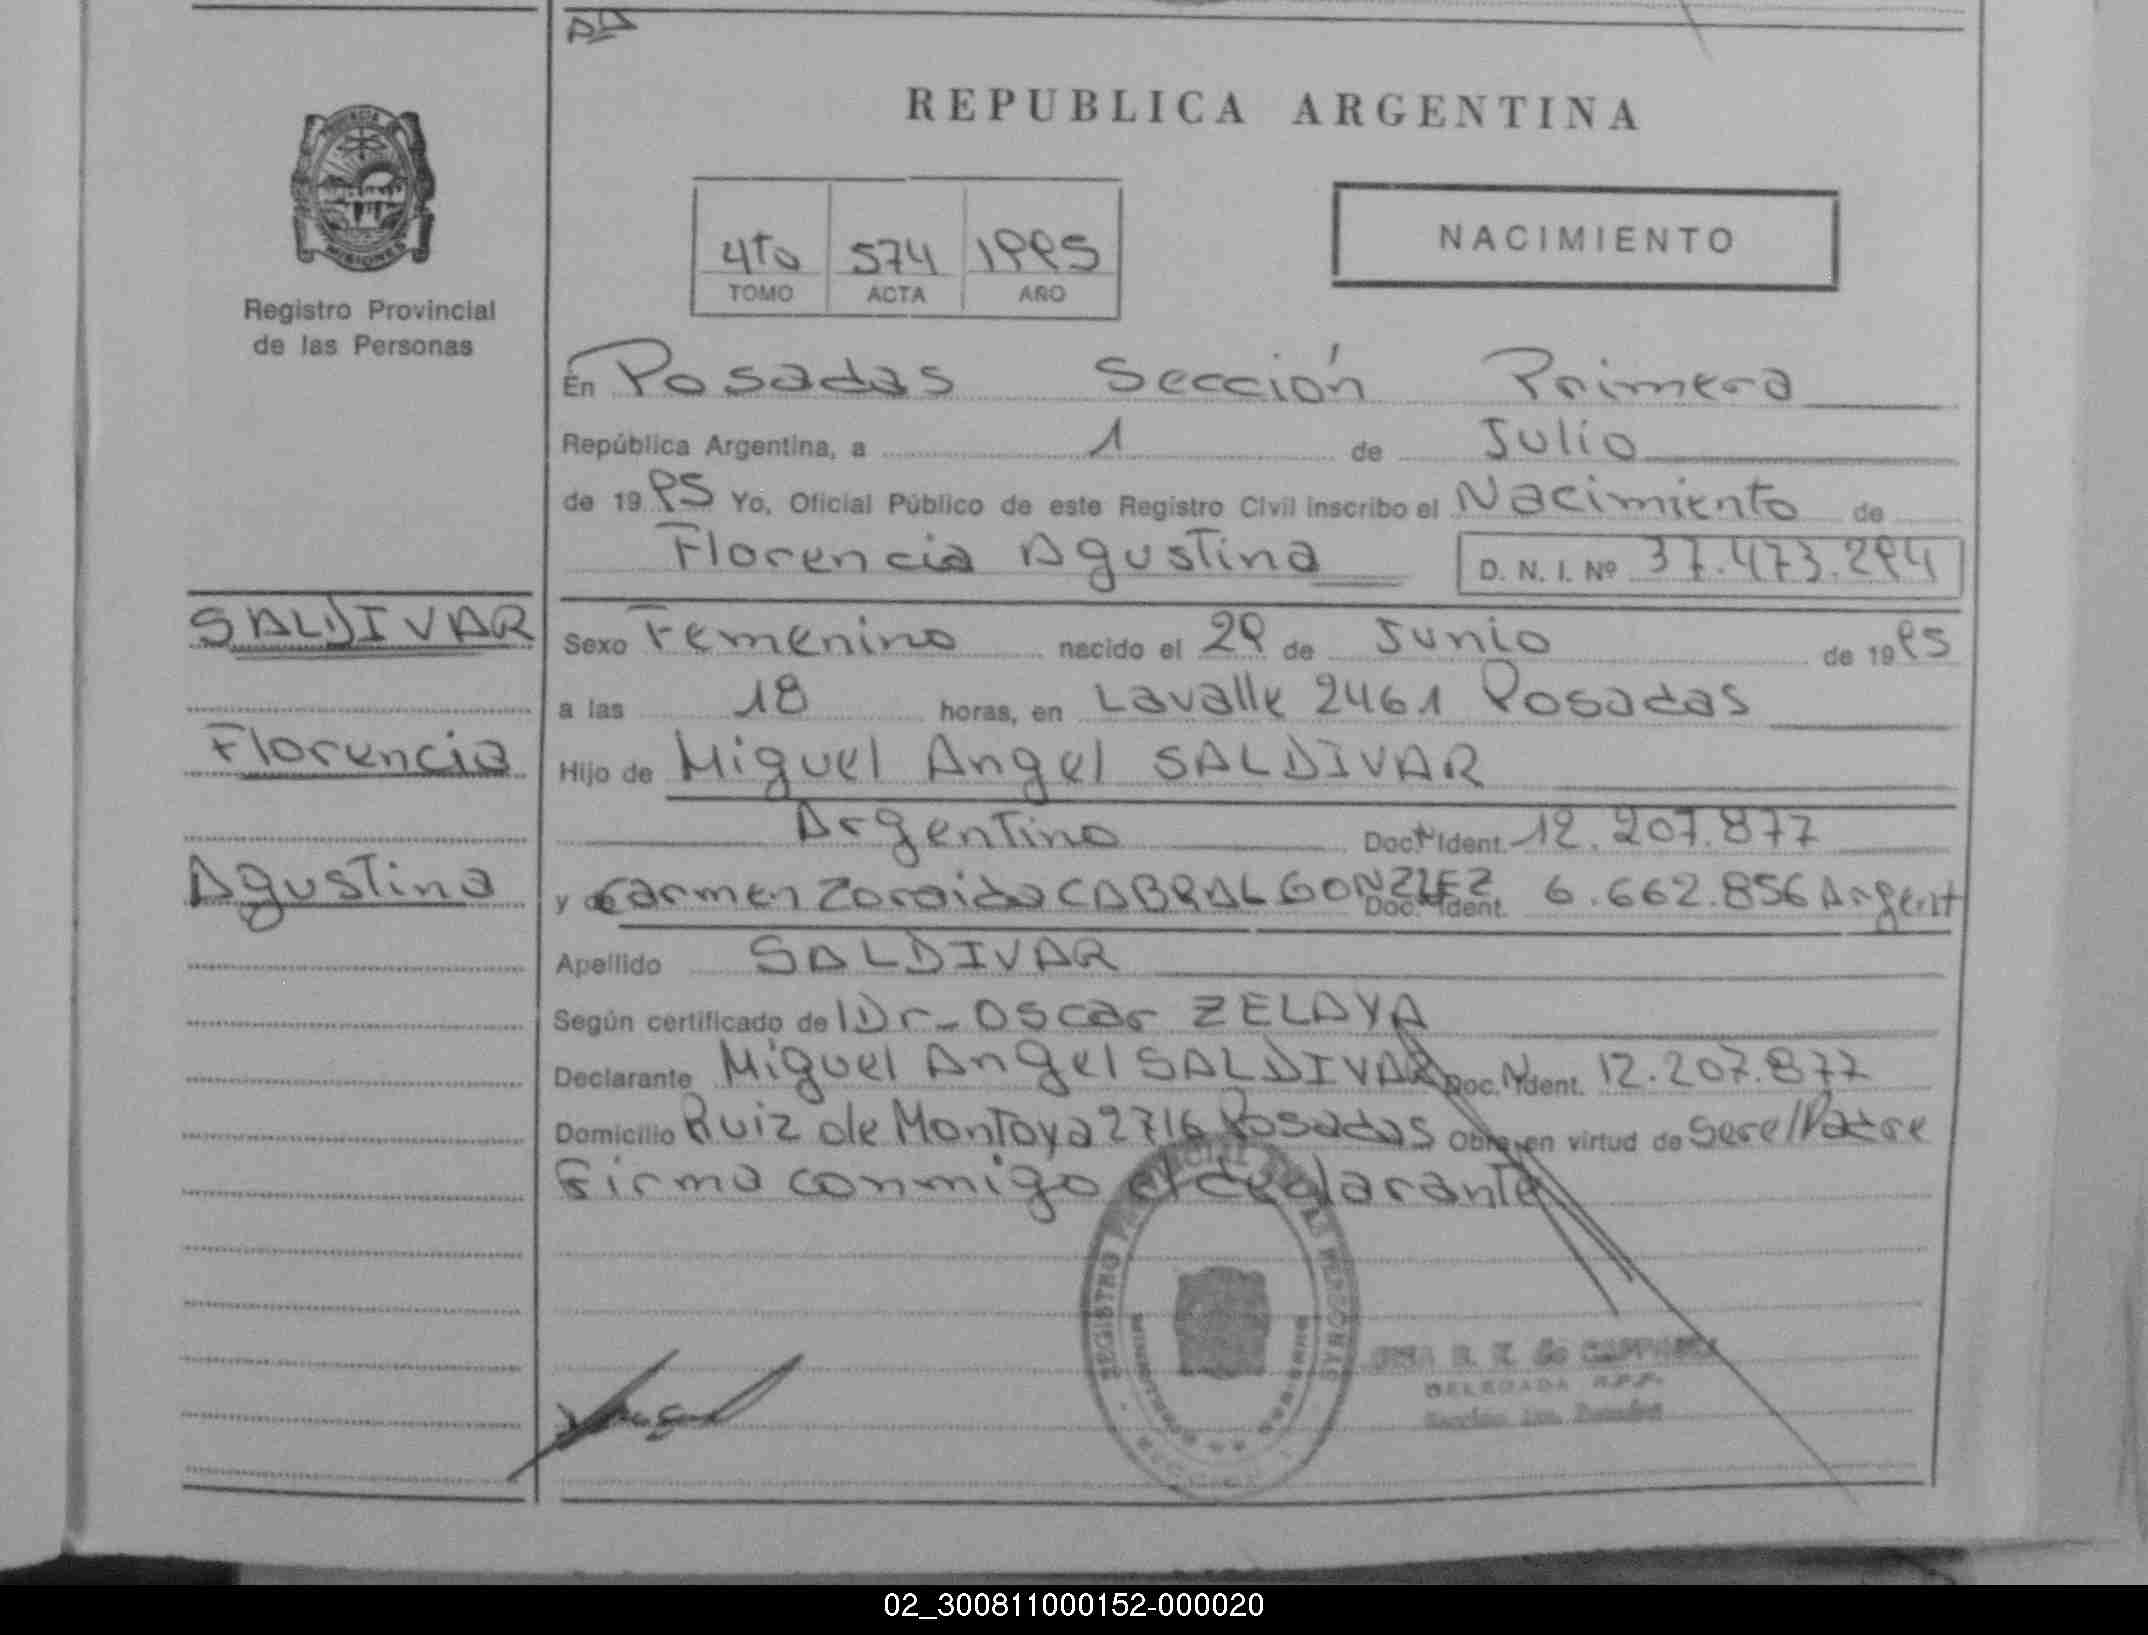 AD
REPUBLICA ARGENTINA
MISIONES
Registro Provincial
de las Personas
4To 574 1995
TOMO ACTA AÑO
NACIMIENTO
En Posadas Sección Primera
República Argentina, a 1 de Julio
de 1995 Yo, Oficial Público de este Registro Civil inscribo el Nacimiento de
Florencia Agustina D. N. I. Nº 37.473.294
SALDIVAR
Florencia
Agustina
Sexo Femenino nacido el 29 de Junio de 1995
a las 18 horas, en Lavalle 2461 Posadas
Hijo de Miguel Angel SALDIVAR
Argentino Doc. Ident. 12.207.877
y de Carmen Zoraida CABRAL GONZLEZ Doc. Ident. 6.662.856 Argent
Apellido SALDIVAR
Según certificado de Dr. Oscar ZELAYA
Declarante Miguel Angel SALDIVAR Doc. Ident. 12.207.877
Domicilio Ruiz de Montoya 2716 Posadas Obra en virtud de Ser el Padre
Firma conmigo el declarante
REGISTRO PROVINCIAL DE LAS PERSONAS
DELEGADA R.P.P.
02_300811000152-000020